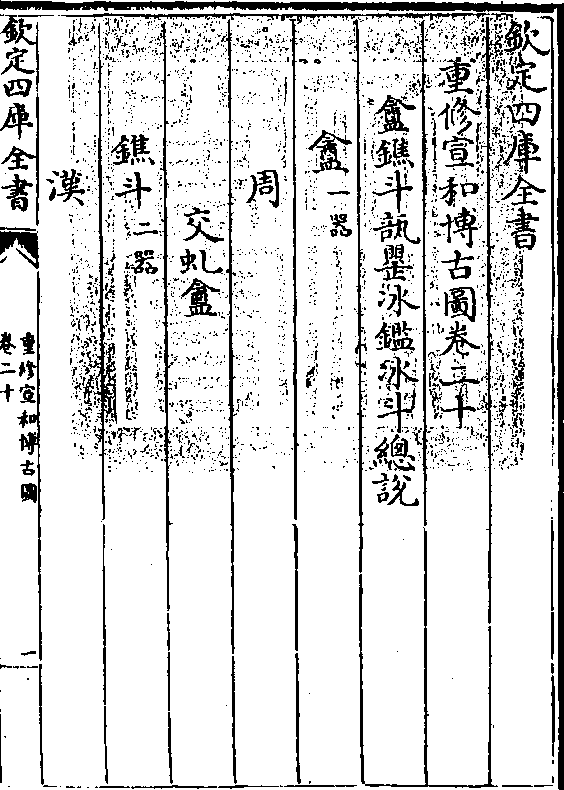 欽定四庫全書
重修宣和博古圖卷二十
盦鐎斗瓿罌冰鑑冰斗總說
盦一器
周
交虬盦
鐎斗二器
漢
欽定四庫全書
重修宣和博古圖
卷二十
一